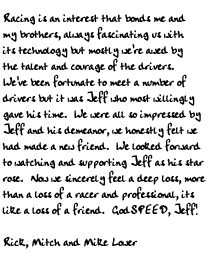 Racing is an interest that bonds me and
my brothers, always fascinating us with
its technology but mostly we're awed by
the talent and courage of the drivers.
We've been fortunate to meet a number of
drivers but it was Jeff who most willingly
gave his time. We were all so impressed by
Jeff and his demeanor, we honestly felt we
had made a new friend. We looked forward
to watching and supporting Jeff as his star
rose. Now we sincerely feel a deep loss, more
than a loss of a racer and professional, its
like a loss of a friend. GodSPEED, Jeff!

Rick, Mitch and Mike Lover